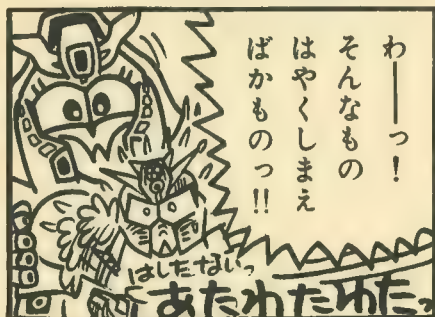 わーーっ!
そんなもの
はやくしまえ
ばかものっ!!
はしたないっ
あたわたわたっ